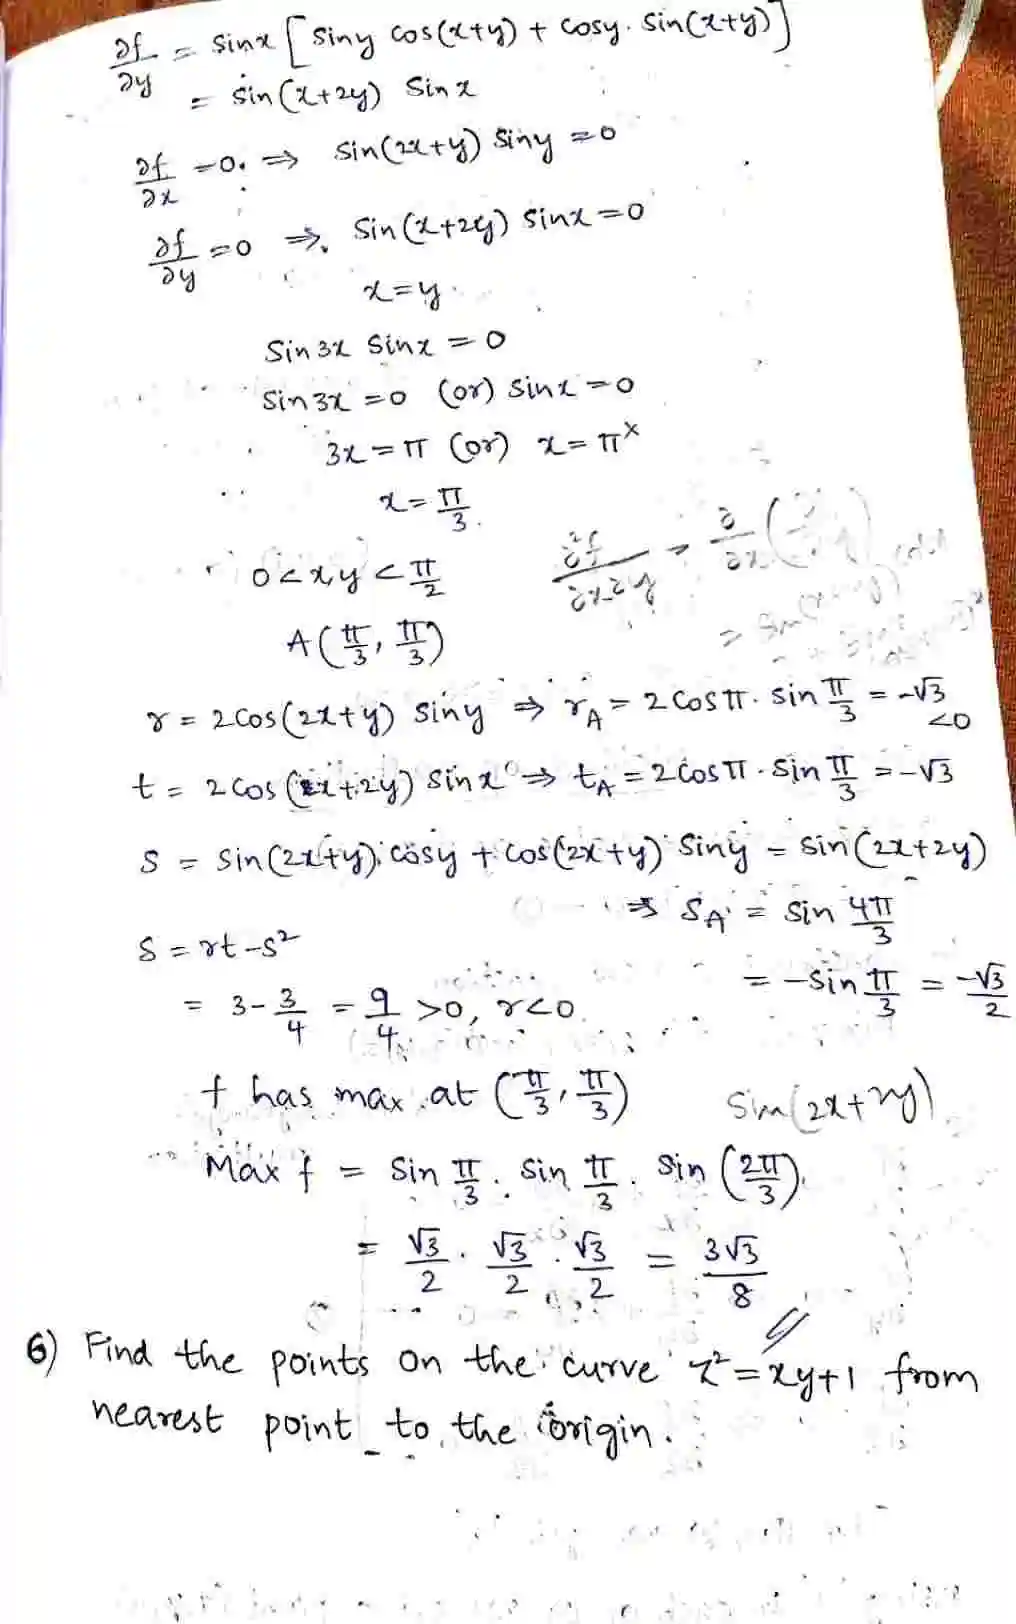 ∂f/∂y = sinx [ siny cos(x+y) + cosy. sin(x+y)]
= sin(x+2y) sinx
∂f/∂x =0. ⇒ sin(2x+y) siny =0
∂f/∂y =0 ⇒. sin(x+2y) sinx=0
x=y
sin3x sinx = 0
sin3x =0 (or) sinx=0
3x=π (or) x=π ×
x=π/3.
0<x,y<π/2
A(π/3, π/3)
r = 2cos(2x+y) siny ⇒ r_A = 2cosπ. sin π/3 = -√3 <0
t = 2cos(x+2y) sinx ⇒ t_A = 2cosπ. sin π/3 = -√3
S = sin(2x+y).cosy + cos(2x+y) siny = sin(2x+2y)
⇒ S_A = sin 4π/3
= -sin π/3 = -√3/2
S = rt-s²
= 3-3/4 = 9/4 >0, r<0.
f has max at (π/3, π/3)
sin(2x+2y)
Max f = sin π/3. sin π/3. sin (2π/3).
= √3/2 . √3/2 . √3/2 = 3√3/8
6) Find the points on the curve z²=xy+1 from
nearest point to the origin.